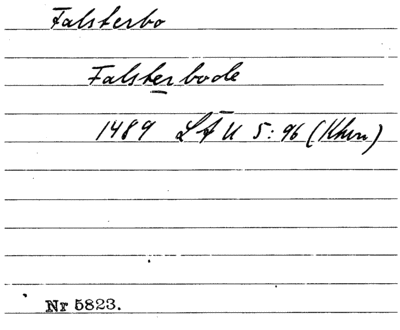 Falsterbo
Falsterbode
1489 LÅU 5:96 (Khvn)
Nr 5823.